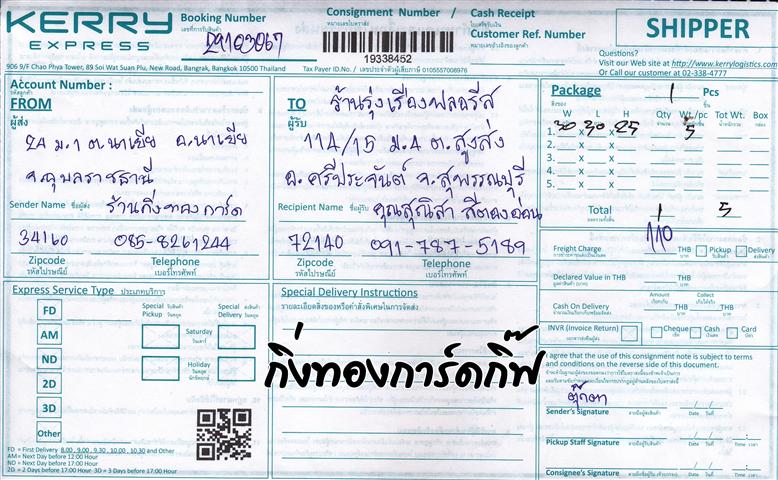 KERRY
EXPRESS
Booking Number
เลขที่การรับสินค้า
29103067
Consignment Number /
หมายเลขใบตราส่ง
Cash Receipt
ใบเสร็จรับเงิน
19338452
Customer Ref. Number
หมายเลขอ้างอิงของลูกค้า
SHIPPER
906 9/F Chao Phya Tower, 89 Soi Wat Suan Plu, New Road, Bangrak, Bangkok 10500 Thailand
Tax Payer ID.No. / เลขประจำตัวผู้เสียภาษี 0105557008976
Questions?
Visit our Web site at http://www.kerrylogistics.com
Or Call our customer at 02-338-4777
Account Number :
รหัสลูกค้า
FROM
ผู้ส่ง
24 ม.1 ต.นาเยีย อ.นาเยีย
จ.อุบลราชธานี
Sender Name ชื่อผู้ส่ง ร้านกิ่งทองการ์ด
34160 085-8261244
Zipcode Telephone
รหัสไปรษณีย์ เบอร์โทรศัพท์
TO
ผู้รับ
ร้านรุ่งเรืองฟลอรีส
114/15 ม.4 ต.
อ.ศรีประจันต์ จ.สุพรรณบุรี
Recipient Name ชื่อผู้รับ คุณสุณิสา
72140 091-787-5189
Zipcode Telephone
รหัสไปรษณีย์ เบอร์โทรศัพท์
Package 1 Pcs
สิ่งของ ชิ้น
W L H Qty Wt./pc Tot Wt. Box
1. 30 x 30 x 25 5
2. x x
3. x x
4. x x
5. x x
Total 1 5
Freight Charge 110 THB Pickup Delivery
Declared Value in THB THB
Amount Collect
Cash On Delivery THB
INVR (Invoice Return) Cheque Cash Card
Express Service Type ประเภทบริการ
FD
AM
ND
2D
3D
Other
Special Pickup
Special Delivery
Saturday
วันเสาร์
Holiday
วันหยุด
นักขัตฤกษ์
FD = First Delivery 8.00 , 9.00 , 9.30 , 10.00 , 10.30 and Other
AM = Next Day before 12:00 Hour
ND = Next Day before 17:00 Hour
2D = 2 Days before 17:00 Hour 3D = 3 Days before 17:00 Hour
Special Delivery Instructions
รายละเอียดสิ่งของหรือคำสั่งพิเศษในการจัดส่ง
กิ่งทองการ์ดกิ๊ฟ
I agree that the use of this consignment note is subject to terms
and conditions on the reverse side of this document.
ตุ๊กตา
Sender's Signature
Date วันที่
Pickup Staff Signature
Date วันที่ Time เวลา
Consignee's Signature
Date วันที่ Time เวลา